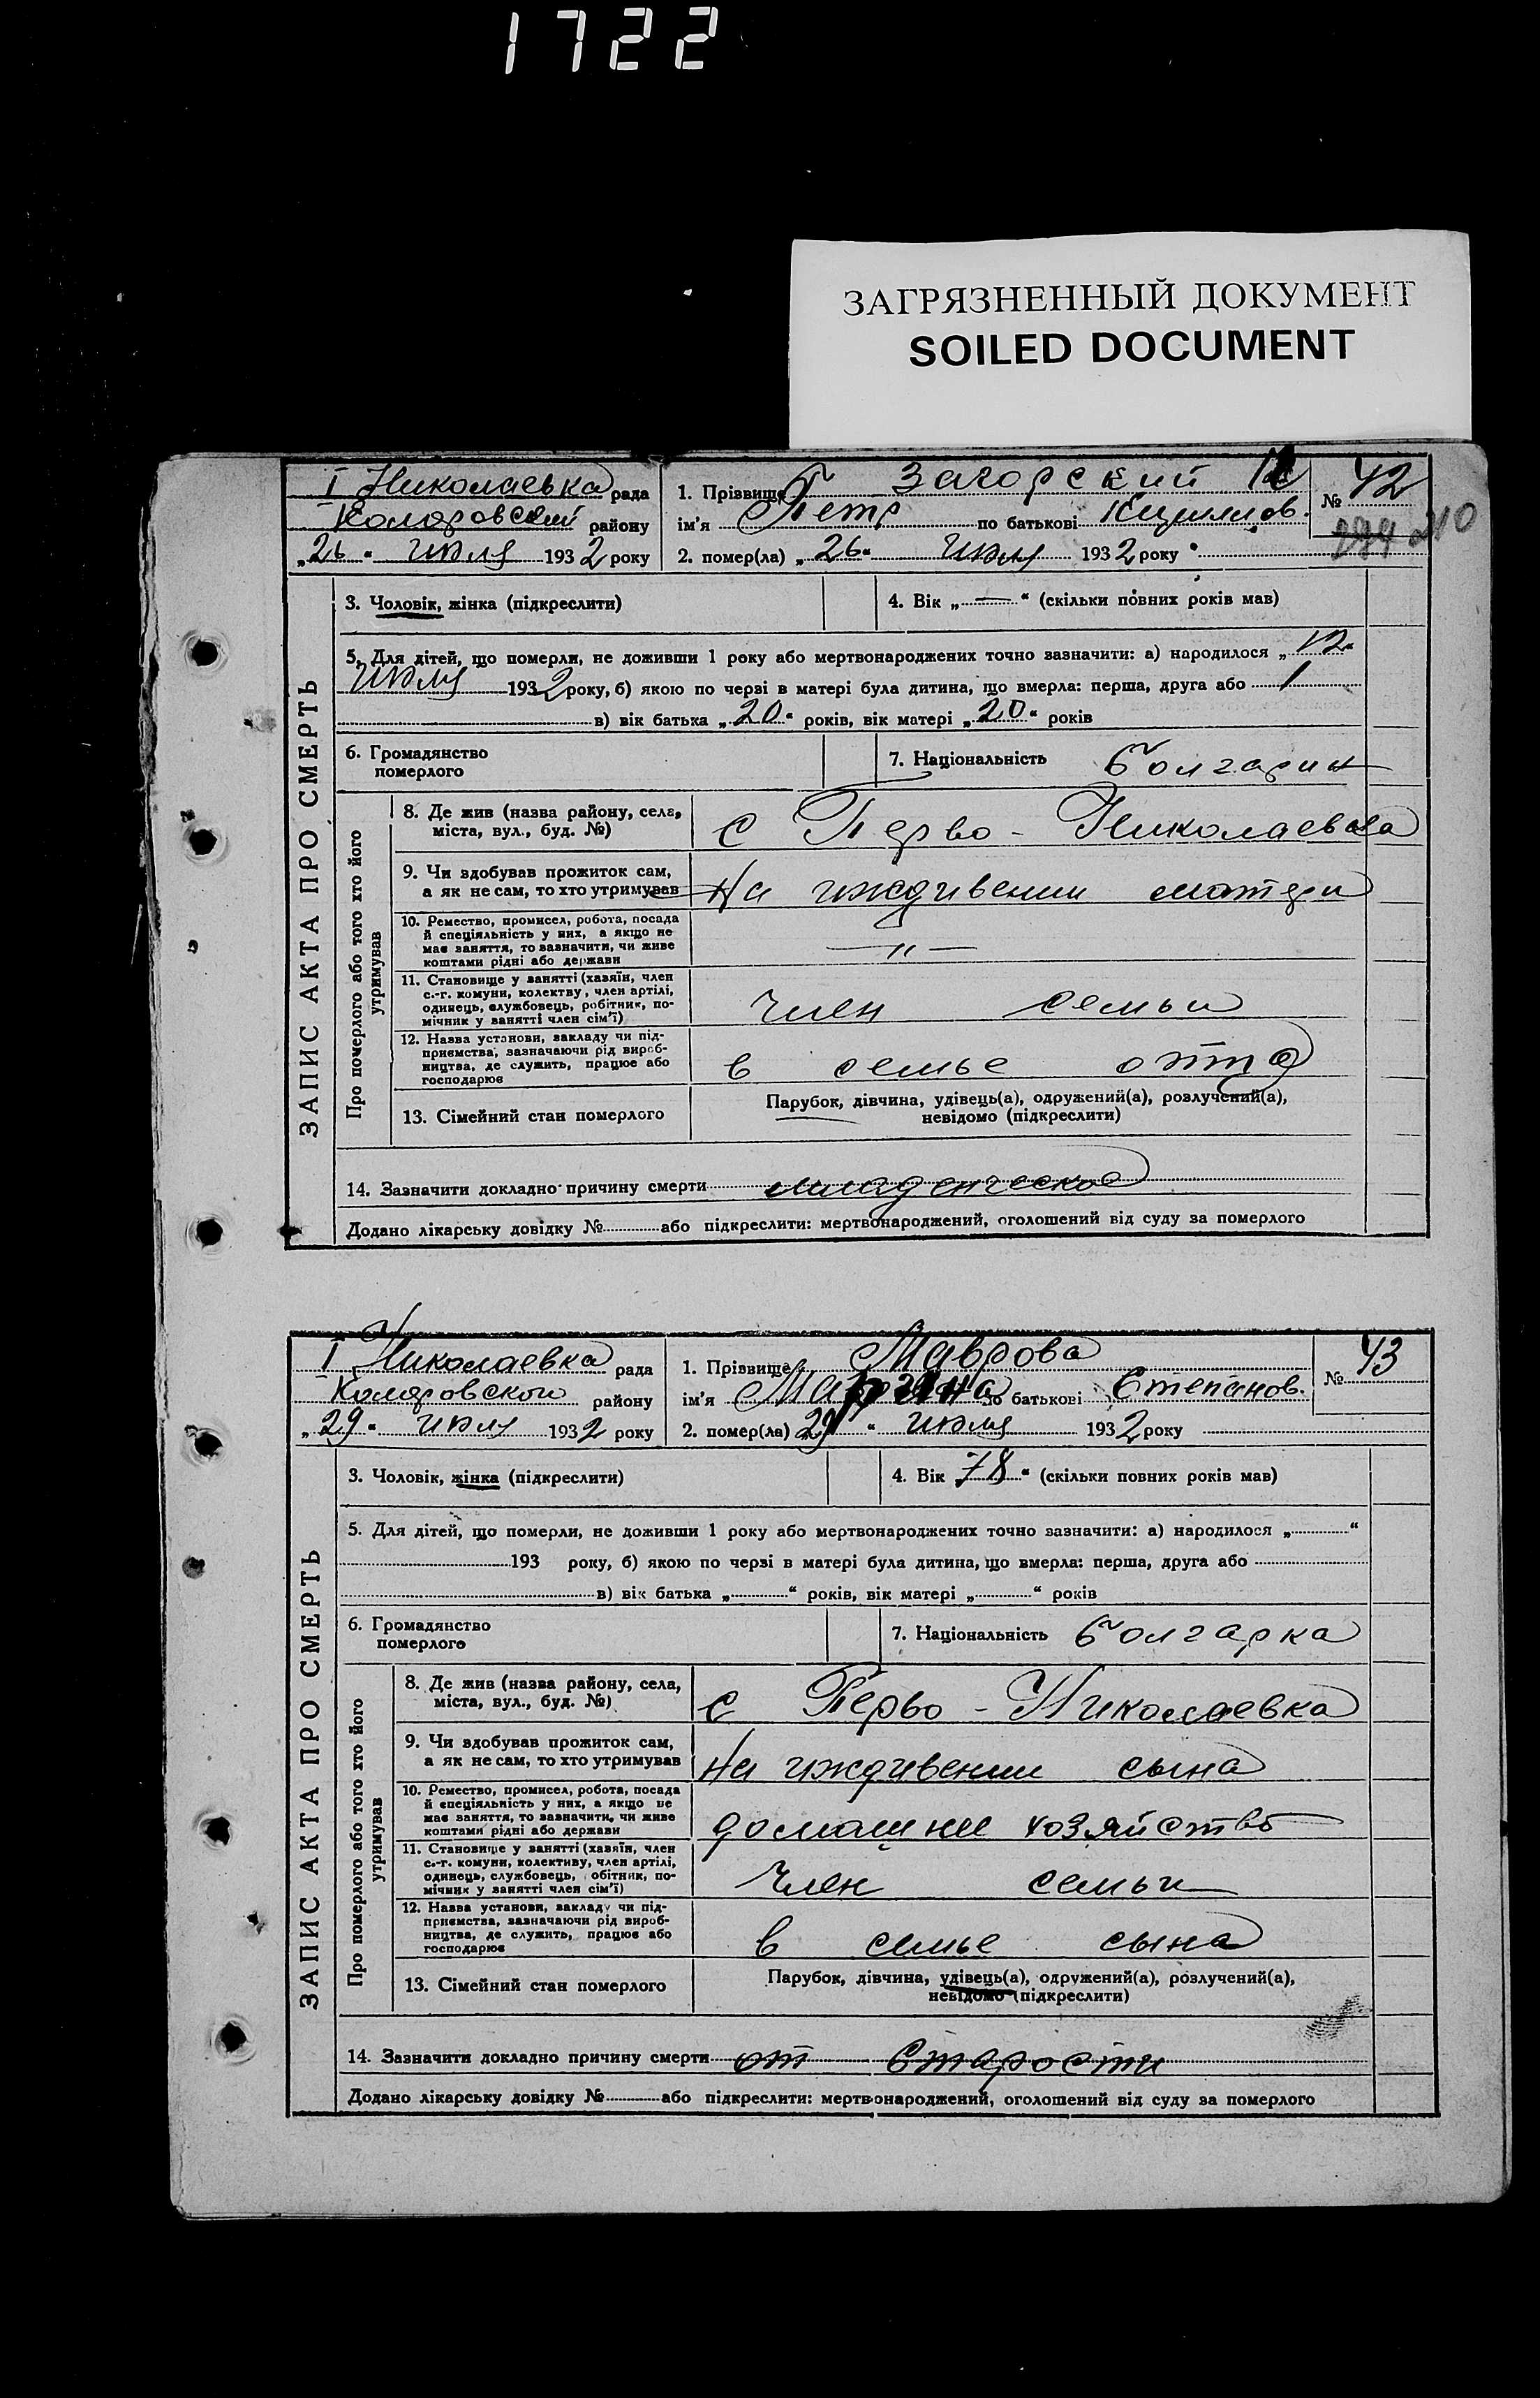 1722
ЗАГРЯЗНЕННЫЙ ДОКУМЕНТ
SOILED DOCUMENT
I Николаевка рада
Коларовский району
„26“ июля 1932 року
1. Прізвище Загорский
ім'я Петр по батькові Кириллов.
2. помер(ла) „26“ июля 1932 року
№ 42
274 210
ЗАПИС АКТА ПРО СМЕРТЬ
3. Чоловік, жінка (підкреслити)
4. Вік „—“ (скільки повних років мав)
5. Для дітей, що померли, не доживши 1 року або мертвонароджених точно зазначити: а) народилося „12“
июля 1932 року, б) якою по черзі в матері була дитина, що вмерла: перша, друга або 1
в) вік батька „20“ років, вік матері „20“ років
6. Громадянство
померлого
7. Національність болгарин
Про померлого або того хто його
утримував
8. Де жив (назва району, села,
міста, вул., буд. №)
с Перво-Николаевка
9. Чи здобував прожиток сам,
а як не сам, то хто утримував
На иждивении матери
10. Ремество, промисел, робота, посада
й спеціяльність у них, а якщо не
має заняття, то зазначити, чи живе
коштами рідні або держави
— " —
11. Становище у занятті (хазяїн, член
с.-г. комуни, колективу, член артілі,
одинець, службовець, робітник, по-
мічник у занятті член сім'ї)
Член семьи
12. Назва установи, закладу чи під-
приємства, зазначаючи рід вироб-
ництва, де служить, працює або
господарює
в семье отца
13. Сімейний стан померлого
Парубок, дівчина, удівець(а), одружений(а), розлучений(а),
невідомо (підкреслити)
14. Зазначити докладно причину смерти младенческое
Додано лікарську довідку № або підкреслити: мертвонароджений, оголошений від суду за померлого
I Николаевка рада
Коларовского району
„29“ июля 1932 року
1. Прізвище Маврова
ім'я Марина по батькові Степанов.
2. помер(ла) 29“ июля 1932 року
№ 43
ЗАПИС АКТА ПРО СМЕРТЬ
3. Чоловік, жінка (підкреслити)
4. Вік „78“ (скільки повних років мав)
5. Для дітей, що померли, не доживши 1 року або мертвонароджених точно зазначити: а) народилося „ “
193 року, б) якою по черзі в матері була дитина, що вмерла: перша, друга або
в) вік батька „ “ років, вік матері „ “ років
6. Громадянство
померлого
7. Національність болгарка
Про померлого або того хто його
утримував
8. Де жив (назва району, села,
міста, вул., буд. №)
с Перво-Николаевка
9. Чи здобував прожиток сам,
а як не сам, то хто утримував
На иждивении сына
10. Ремество, промисел, робота, посада
й спеціяльність у них, а якщо не
має заняття, то зазначити, чи живе
коштами рідні або держави
домашнее хозяйство
11. Становище у занятті (хазяїн, член
с.-г. комуни, колективу, член артілі,
одинець, службовець, обітник, по-
мічник у занятті член сім'ї)
Член семьи
12. Назва установи, закладу чи під-
приємства, зазначаючи рід вироб-
ництва, де служить, працює або
господарює
в семье сына
13. Сімейний стан померлого
Парубок, дівчина, удівець(а), одружений(а), розлучений(а),
невідомо (підкреслити)
14. Зазначити докладно причину смерти от старости
Додано лікарську довідку № або підкреслити: мертвонароджений, оголошений від суду за померлого